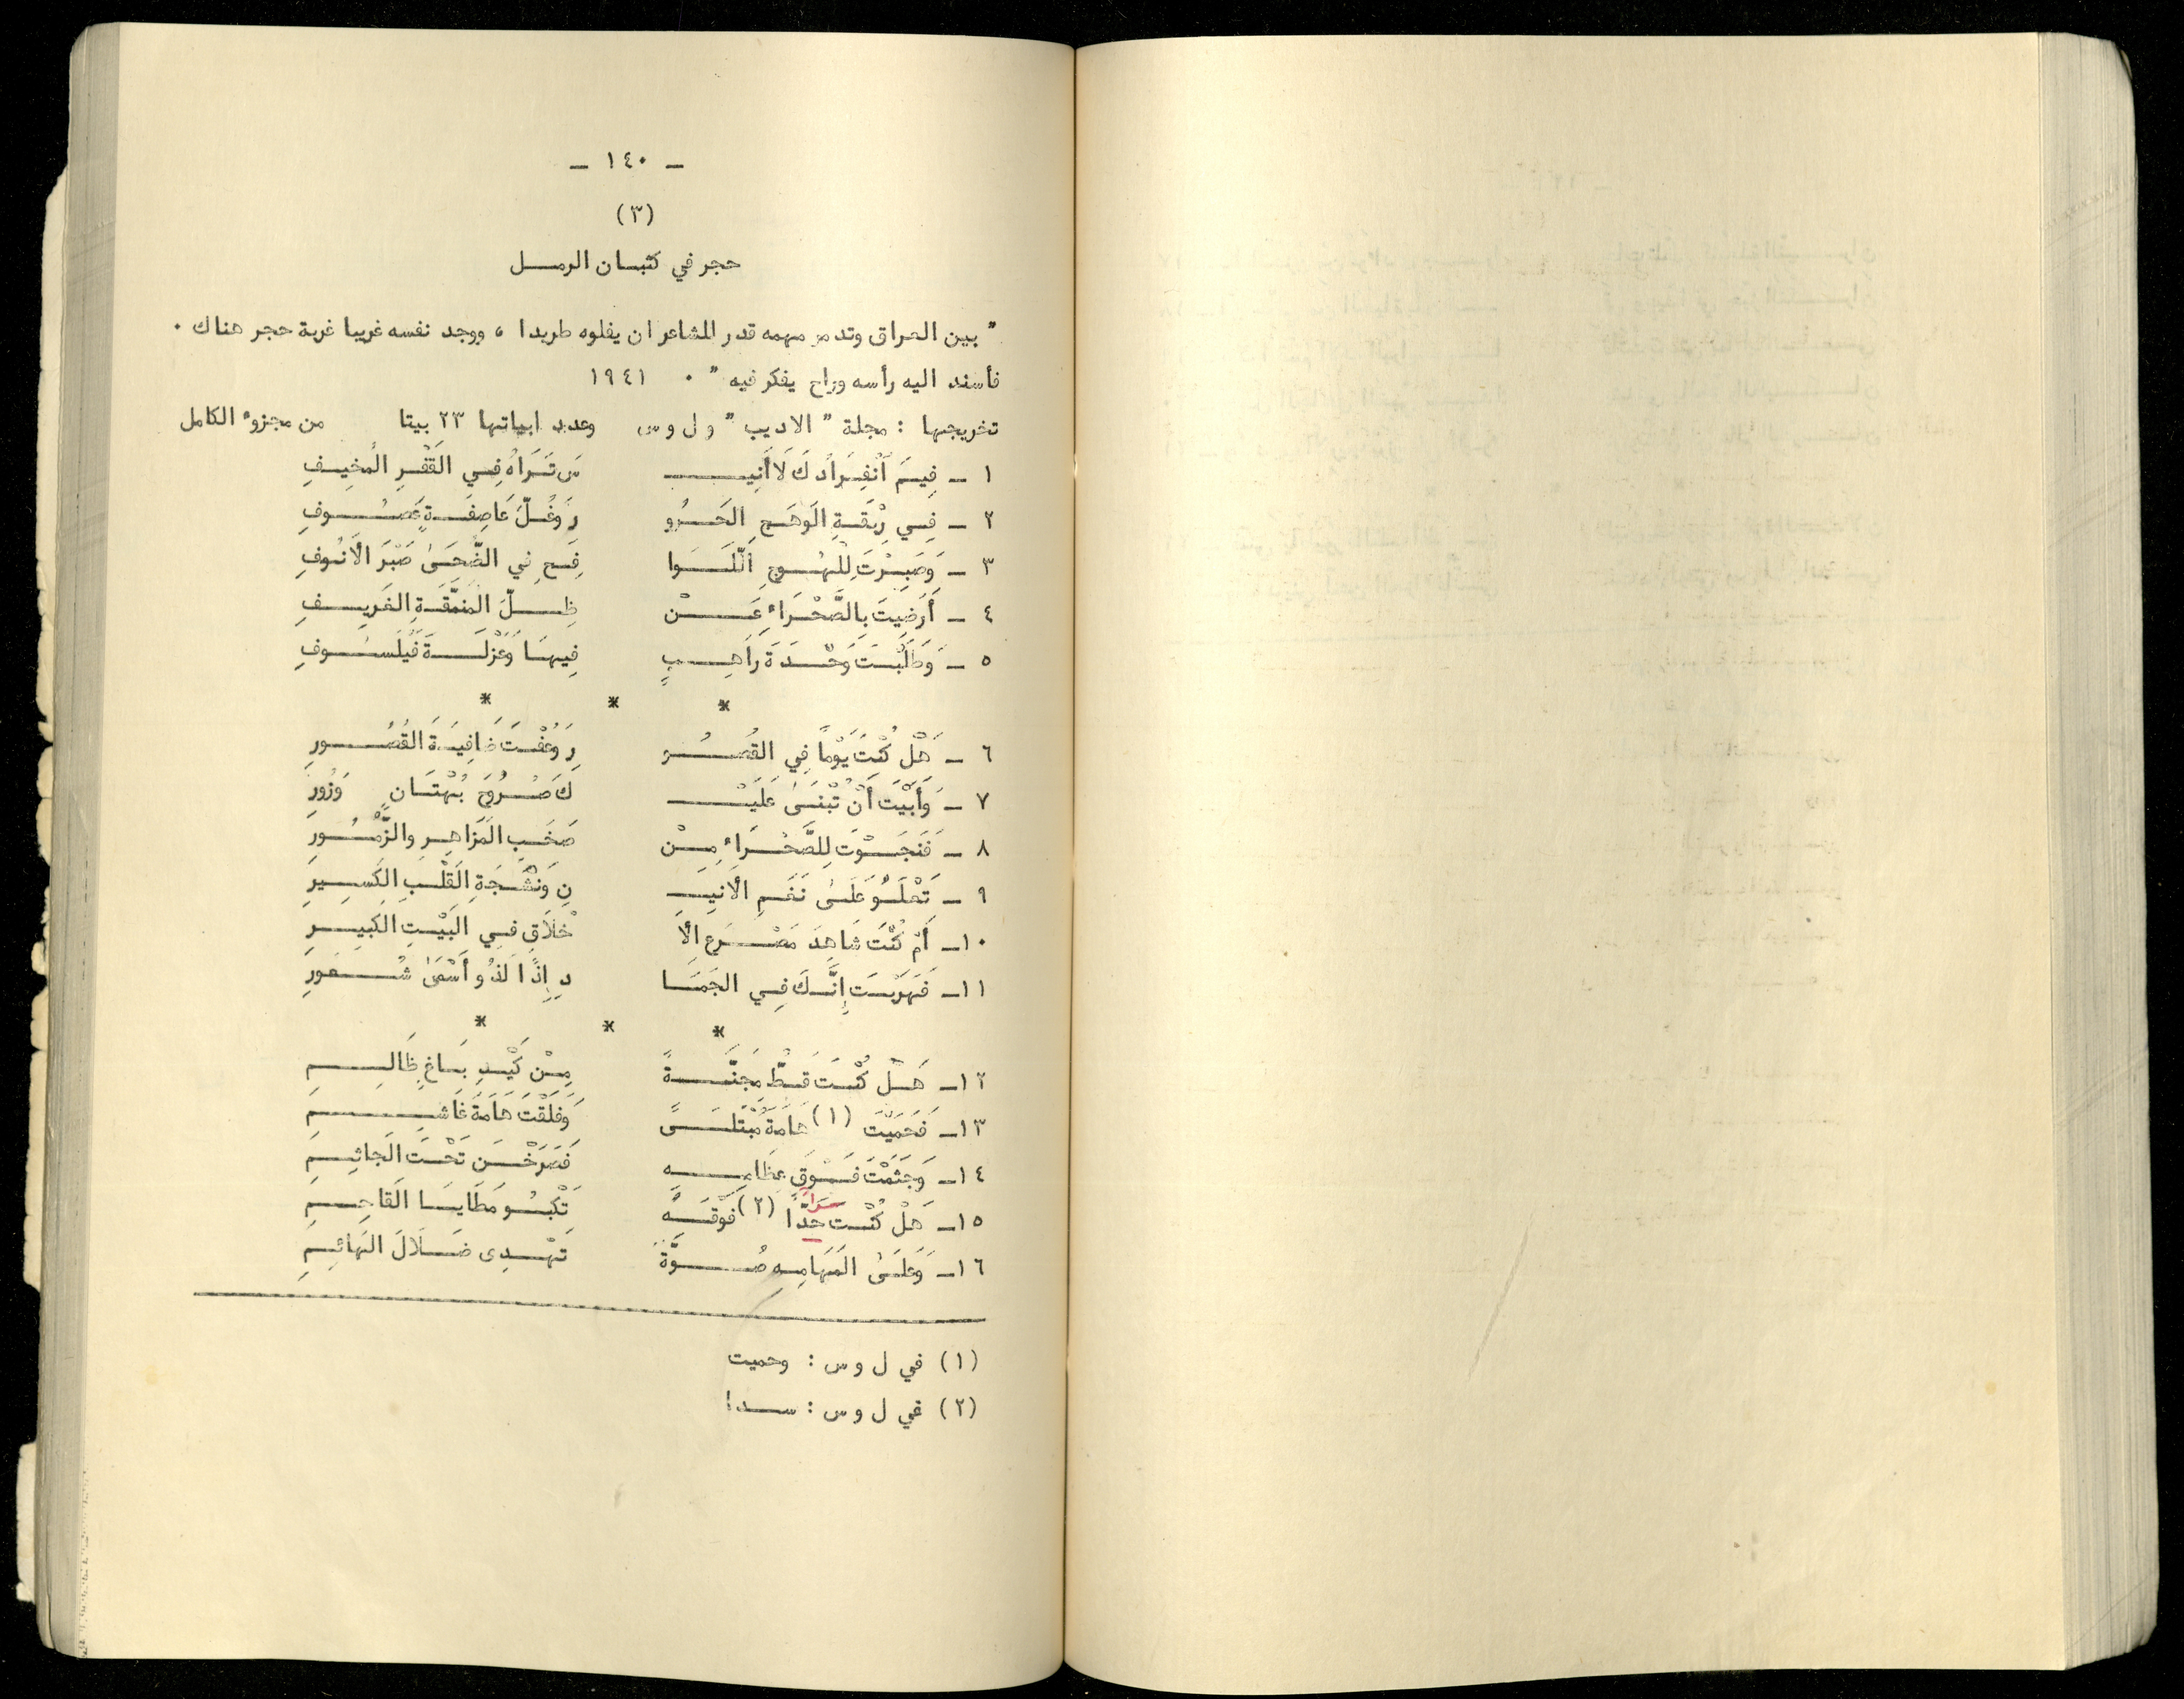 ـ ١٤٠ ـ
(٣)
حجر في كثبان الرمل
" بين العراق وتدمر مهمه قدر للشاعر ان يفلوه طريدا ، ووجد نفسه غريبا غربة حجر هناك .
فأسند اليه رأسه وراح يفكر فيه " . ١٩٤١
تخريجها : مجلة " الاديب " و ل و س وعدد ابياتها ٢٣ بيتا من مجزوء الكامل
١ ـ فِيمَ ٱنْفِرَادُكَ لَا أَنِيـ سَ تَرَاهُ فِي القَفْرِ المُخِيفِ
٢ ـ فِي رِبْقَةِ الوَهَجِ الحَرُو رِ وَغُلِّ عَاصِفَةٍ عَصُوفِ
٣ ـ وَصَبِرْتَ لِلْهُوجِ اللَّوَا فِحِ فِي الضُّحَىٰ صَبْرَ الأَنُوفِ
٤ ـ أَرَضِيتَ بِالصَّحْرَاءِ عَنْ ظِلِّ المُنَمَّقَةِ الغَرِيفِ
٥ ـ وَطَلَبْتَ وَحْدَةَ رَاهِبٍ فِيهَا وَعُزْلَةَ فَيْلَسُوفِ
* * *
٦ ـ هَلْ كُنْتَ يَوْماً فِي القُصُو رِ وَعُفْتَ ضَافِيَةَ القُصُورِ
٧ ـ وَأَبَيْتَ أَنْ تُبْنَىٰ عَلَيْـ كَ صُرُوحُ بُهْتَانٍ وَزُورِ
٨ ـ فَنَجَوْتَ لِلصَّحْرَاءِ مِنْ صَخَبِ المَزَاهِرِ والزُّمُورِ
٩ ـ تَعْلُو عَلَىٰ نَغَمِ الأَنِيـ نِ وَنَشْجَةِ القَلْبِ الكَسِيرِ
١٠ـ أَمْ كُنْتَ شَاهِدَ مَصْرَعِ الأَ خْلَاقِ فِي البَيْتِ الكَبِيرِ
١١ـ فَهَرَبْتَ إِنَّكَ فِي الجَمَا دِ إِذًا لَذُو أَسْمَىٰ شُعُورِ
* * *
١٢ـ هَلْ كُنْتَ قَطُّ مِجَنَّةً مِنْ كَيْدِ بَاغٍ ظَالِمِ
١٣ـ فَحَمَيْتَ (١) هَامَةَ مُبْتَلَىً وَفَلَقْتَ هَامَةَ غَاشِمِ
١٤ـ وَجَثَمْتَ فَوْقَ عِظَامِهِ فَصَرَخْنَ تَحْتَ الجَاثِمِ
١٥ـ هَلْ كُنْتَ حَدًّا (٢) فَوْقَهُ تَكْبُو مَطَايَا القَاحِمِ
١٦ـ وَعَلَىٰ المَهَامِهِ صُوَّةً تَهْدِى ضَلَالَ الهَائِمِ
(١) في ل و س : وحميت
(٢) في ل و س : سدا